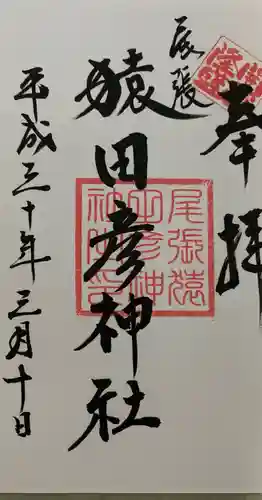 奉拝
尾張
猿田彦神社
平成三十年三月十日
尾張猿
田彦神
社之印